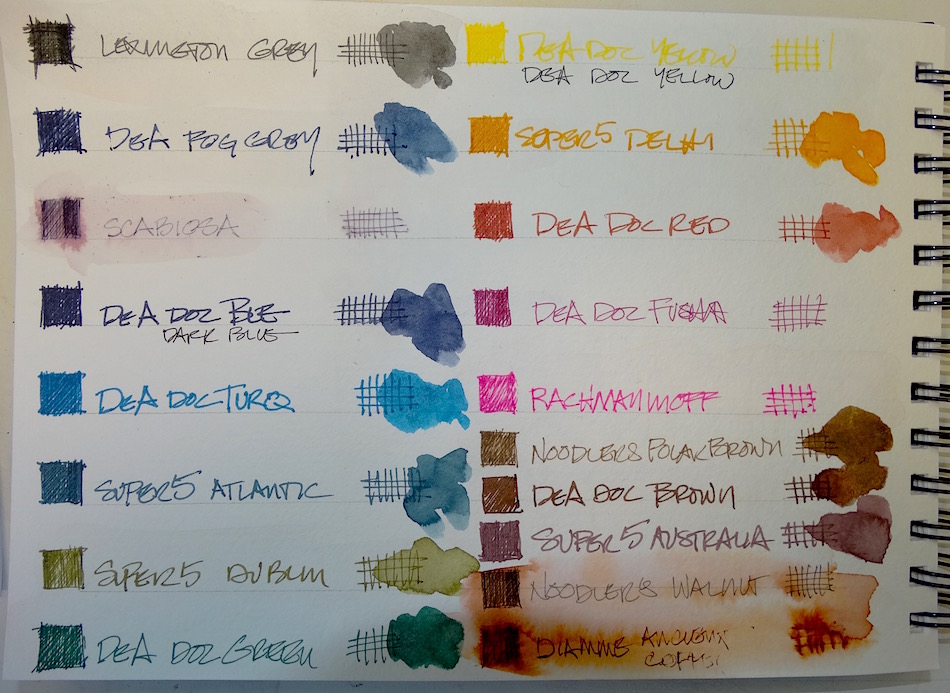 LEXINGTON GREY
DEA FOG GREY
SCABIOSA
DEA DOC BLE
DARK BLUE
DEA DOC TURQ
SUPER5 ATLANTIC
SUPER5 DUBLIN
DEA DOC GREEN
DEA DOC YELLOW
DEA DOC YELLOW
SUPER5 DELHI
DEA DOC RED
DEA DOC
RACHMANINOFF
NOODLERS POLAR BROWN
DEA DOC BROWN
SUPER5 AUSTRALIA
NOODLERS WALNUT
ANCIENT